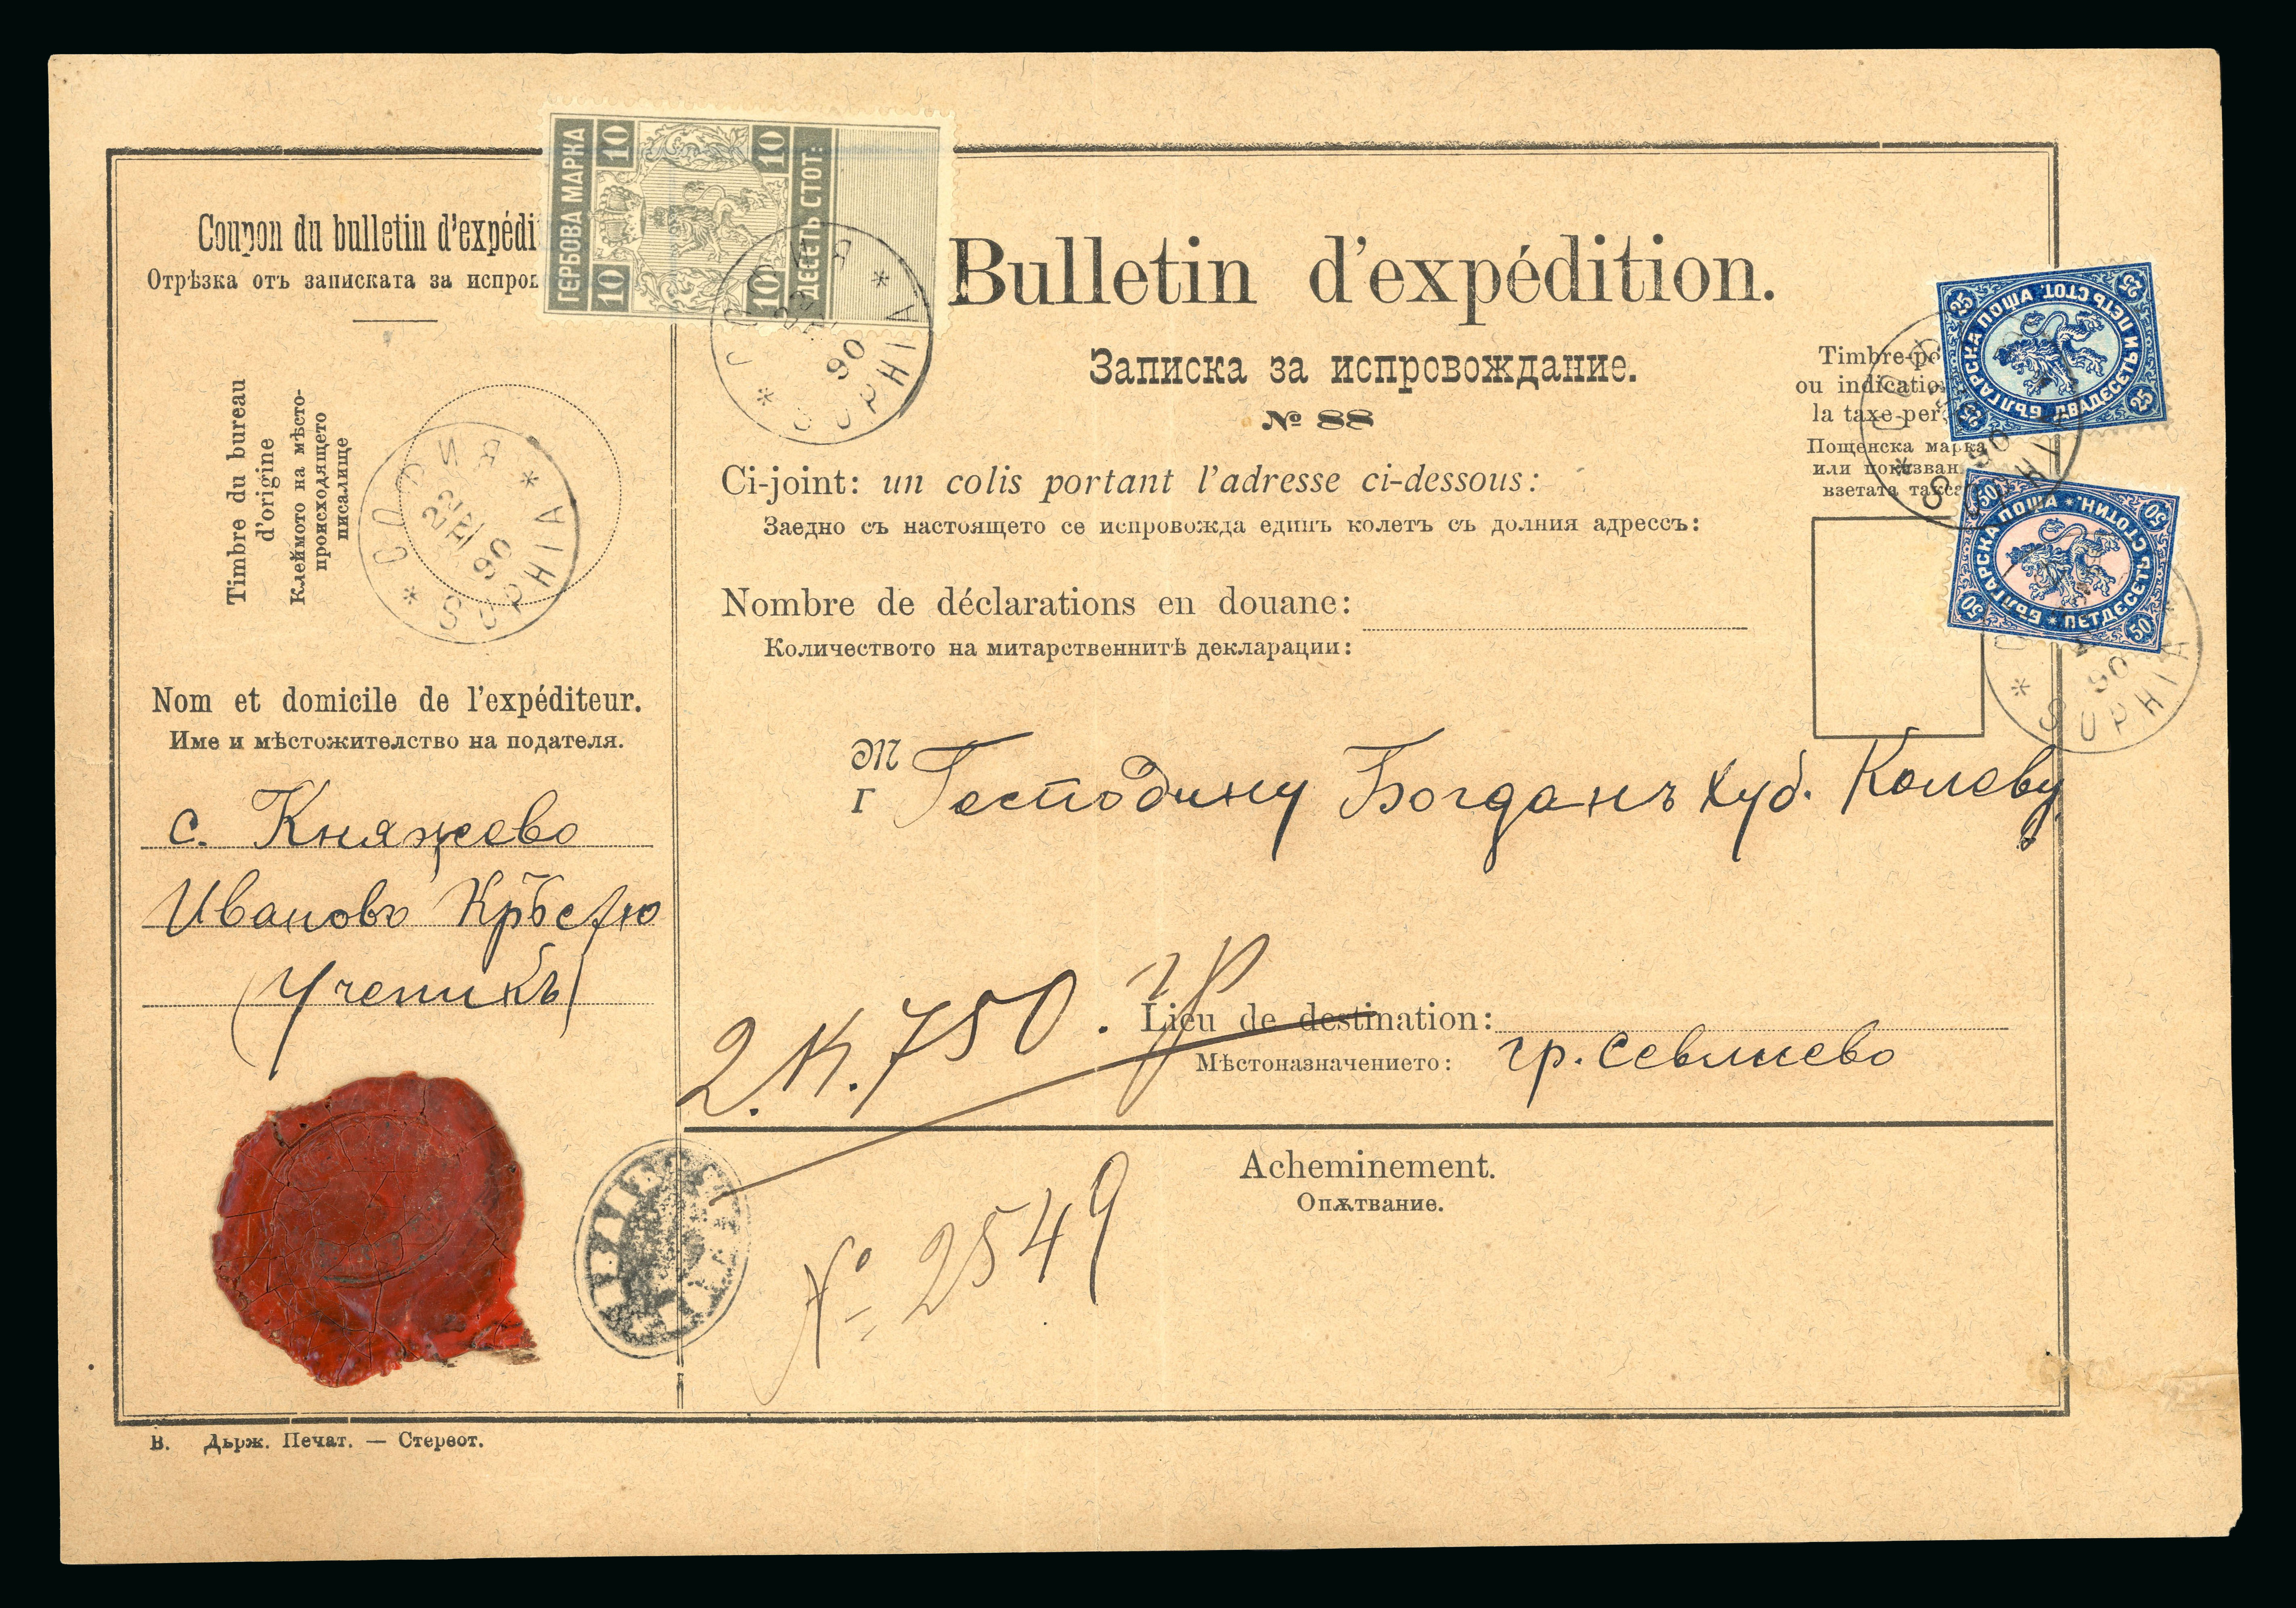 Coupon du bulletin d'expédi
Отрѣзка отъ записката за испров
ГЕРБОВА МАРКА
10 10
10 10
ДЕСЕТЬ СТОТ:
СОФИЯ * SOPHIA *
90
Bulletin d'expédition.
Записка за испровождание.
№ 88
Timbre-po
ou indicatio
la taxe per
Пощенска марка
или показван
взетата такса
БЪЛГАРСКА ПОЩА. ДВАДЕСЕТЬ И ПЕТЬ СТОТ.
25 25 25 25
БЪЛГАРСКА ПОЩА * ПЕТДЕСЕТЬ СТОТИН. *
50 50 50 50
90
SOPHIA
90
Timbre du bureau
d'origine
Клеймото на мѣсто-
происходящето
писалище
СОФИЯ * SOPHIA *
90
Ci-joint: un colis portant l'adresse ci-dessous:
Заедно съ настоящето се испровожда единъ колетъ съ долния адрессъ:
Nombre de déclarations en douane:
Количеството на митарственнитѣ декларации:
Nom et domicile de l'expéditeur.
Име и мѣстожителство на подателя.
с. Княжево
Ивановъ Кръстю
(Ученикъ)
M
Г Господину Богданъ Хуб. Колеву
2. К. 750. гр
Lieu de destination:
Мѣстоназначението: гр. Севлиево
Acheminement.
Опѫтвание.
№ 2549
В. Държ. Печат. — Стереот.